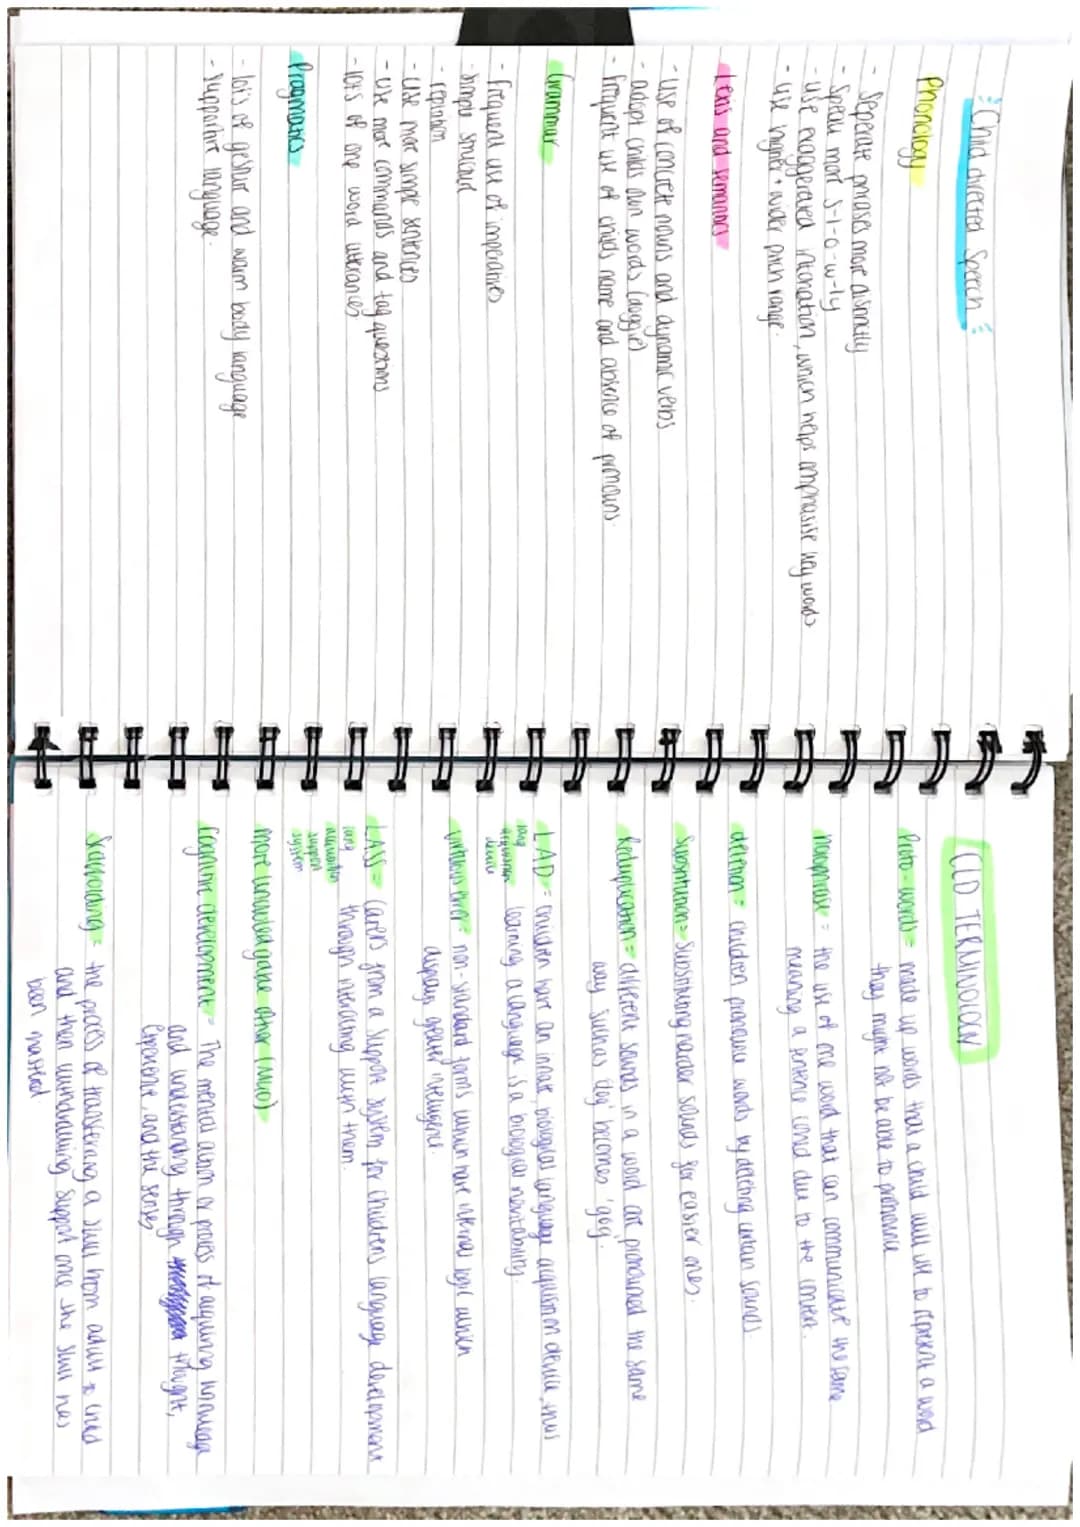 Child directed Speech
Phonology
- Seperate phrases more distinctly
- Speak more s-l-o-w-ly
- use exaggerated intonation, which helps emphasise key words
- use higher + wider pitch range.
Lexis and semantics
- use of concrete nouns and dynamic verbs
- adopt childs own words (doggie)
- frequent use of childs name and absence of pronouns.
Grammar
- frequent use of imperatives
- simple structure
- repition
- use more simple sentences
- use more commands and tag questions
- lots of one word utterances
Pragmatics
- lots of gestur and warm body language
- supportive language.
CLD TERMINOLOGY
Proto-words = made up words that a child will use to represent a word
they might not be able to pronounce
holophrase = the use of one word that can communicate the same
meaning a sentence could due to the context.
deletion = children pronounce words by deleting certain sounds
Substitution = Substituting harder sounds for easier ones.
Reduplication = different sounds in a word are pronounced the same
way such as 'dog' becomes 'gog'.
LAD = children have an innate, biological language acquisition device, thus
lang acquisition device
learning a language is a biological inevitability
virtuous error = non-standard forms which have internal logic which
display greater intelligence.
LASS = Carers from a support system for childrens language development
lang acquisition support system
through interacting with them.
More knowledgable other (MKO)
Cognitive development = The mental action or process of aquiring knowledge
and understanding through thought,
experience, and the senses
Scaffolding = the process of transfering a skill from adult to child
and then withdrawing support once the skill has
been mastered